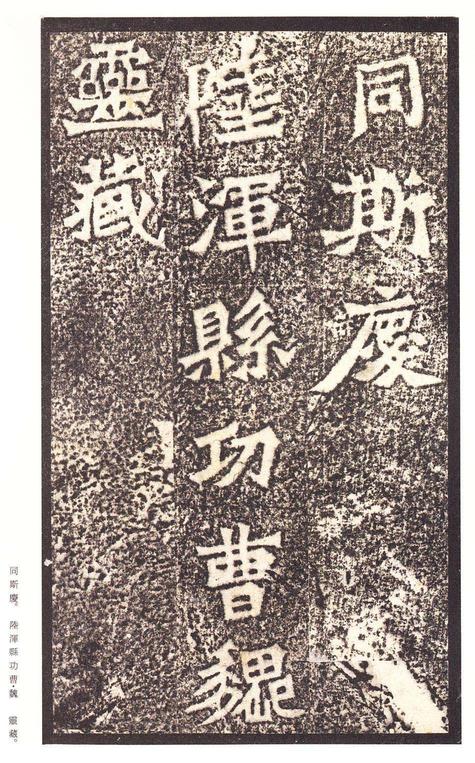 同斯慶
陸渾縣功曹魏
靈藏
同斯慶。陸渾縣功曹魏 靈藏。